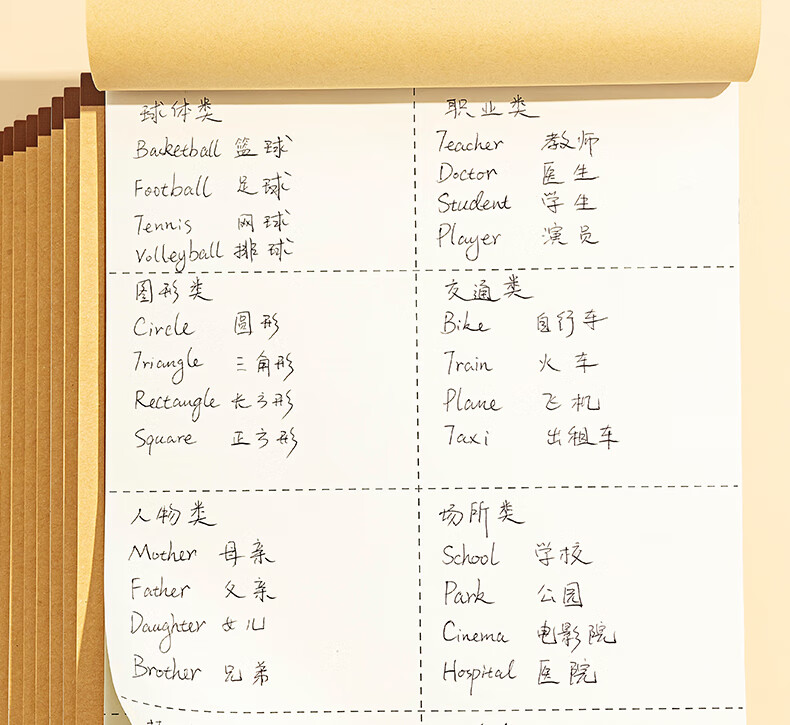 球体类
Basketball 篮球
Football 足球
Tennis 网球
Volleyball 排球
职业类
Teacher 教师
Doctor 医生
Student 学生
Player 演员
图形类
Circle 圆形
Triangle 三角形
Rectangle 长方形
Square 正方形
交通类
Bike 自行车
Train 火车
Plane 飞机
Taxi 出租车
人物类
Mother 母亲
Father 父亲
Daughter 女儿
Brother 兄弟
场所类
School 学校
Park 公园
Cinema 电影院
Hospital 医院